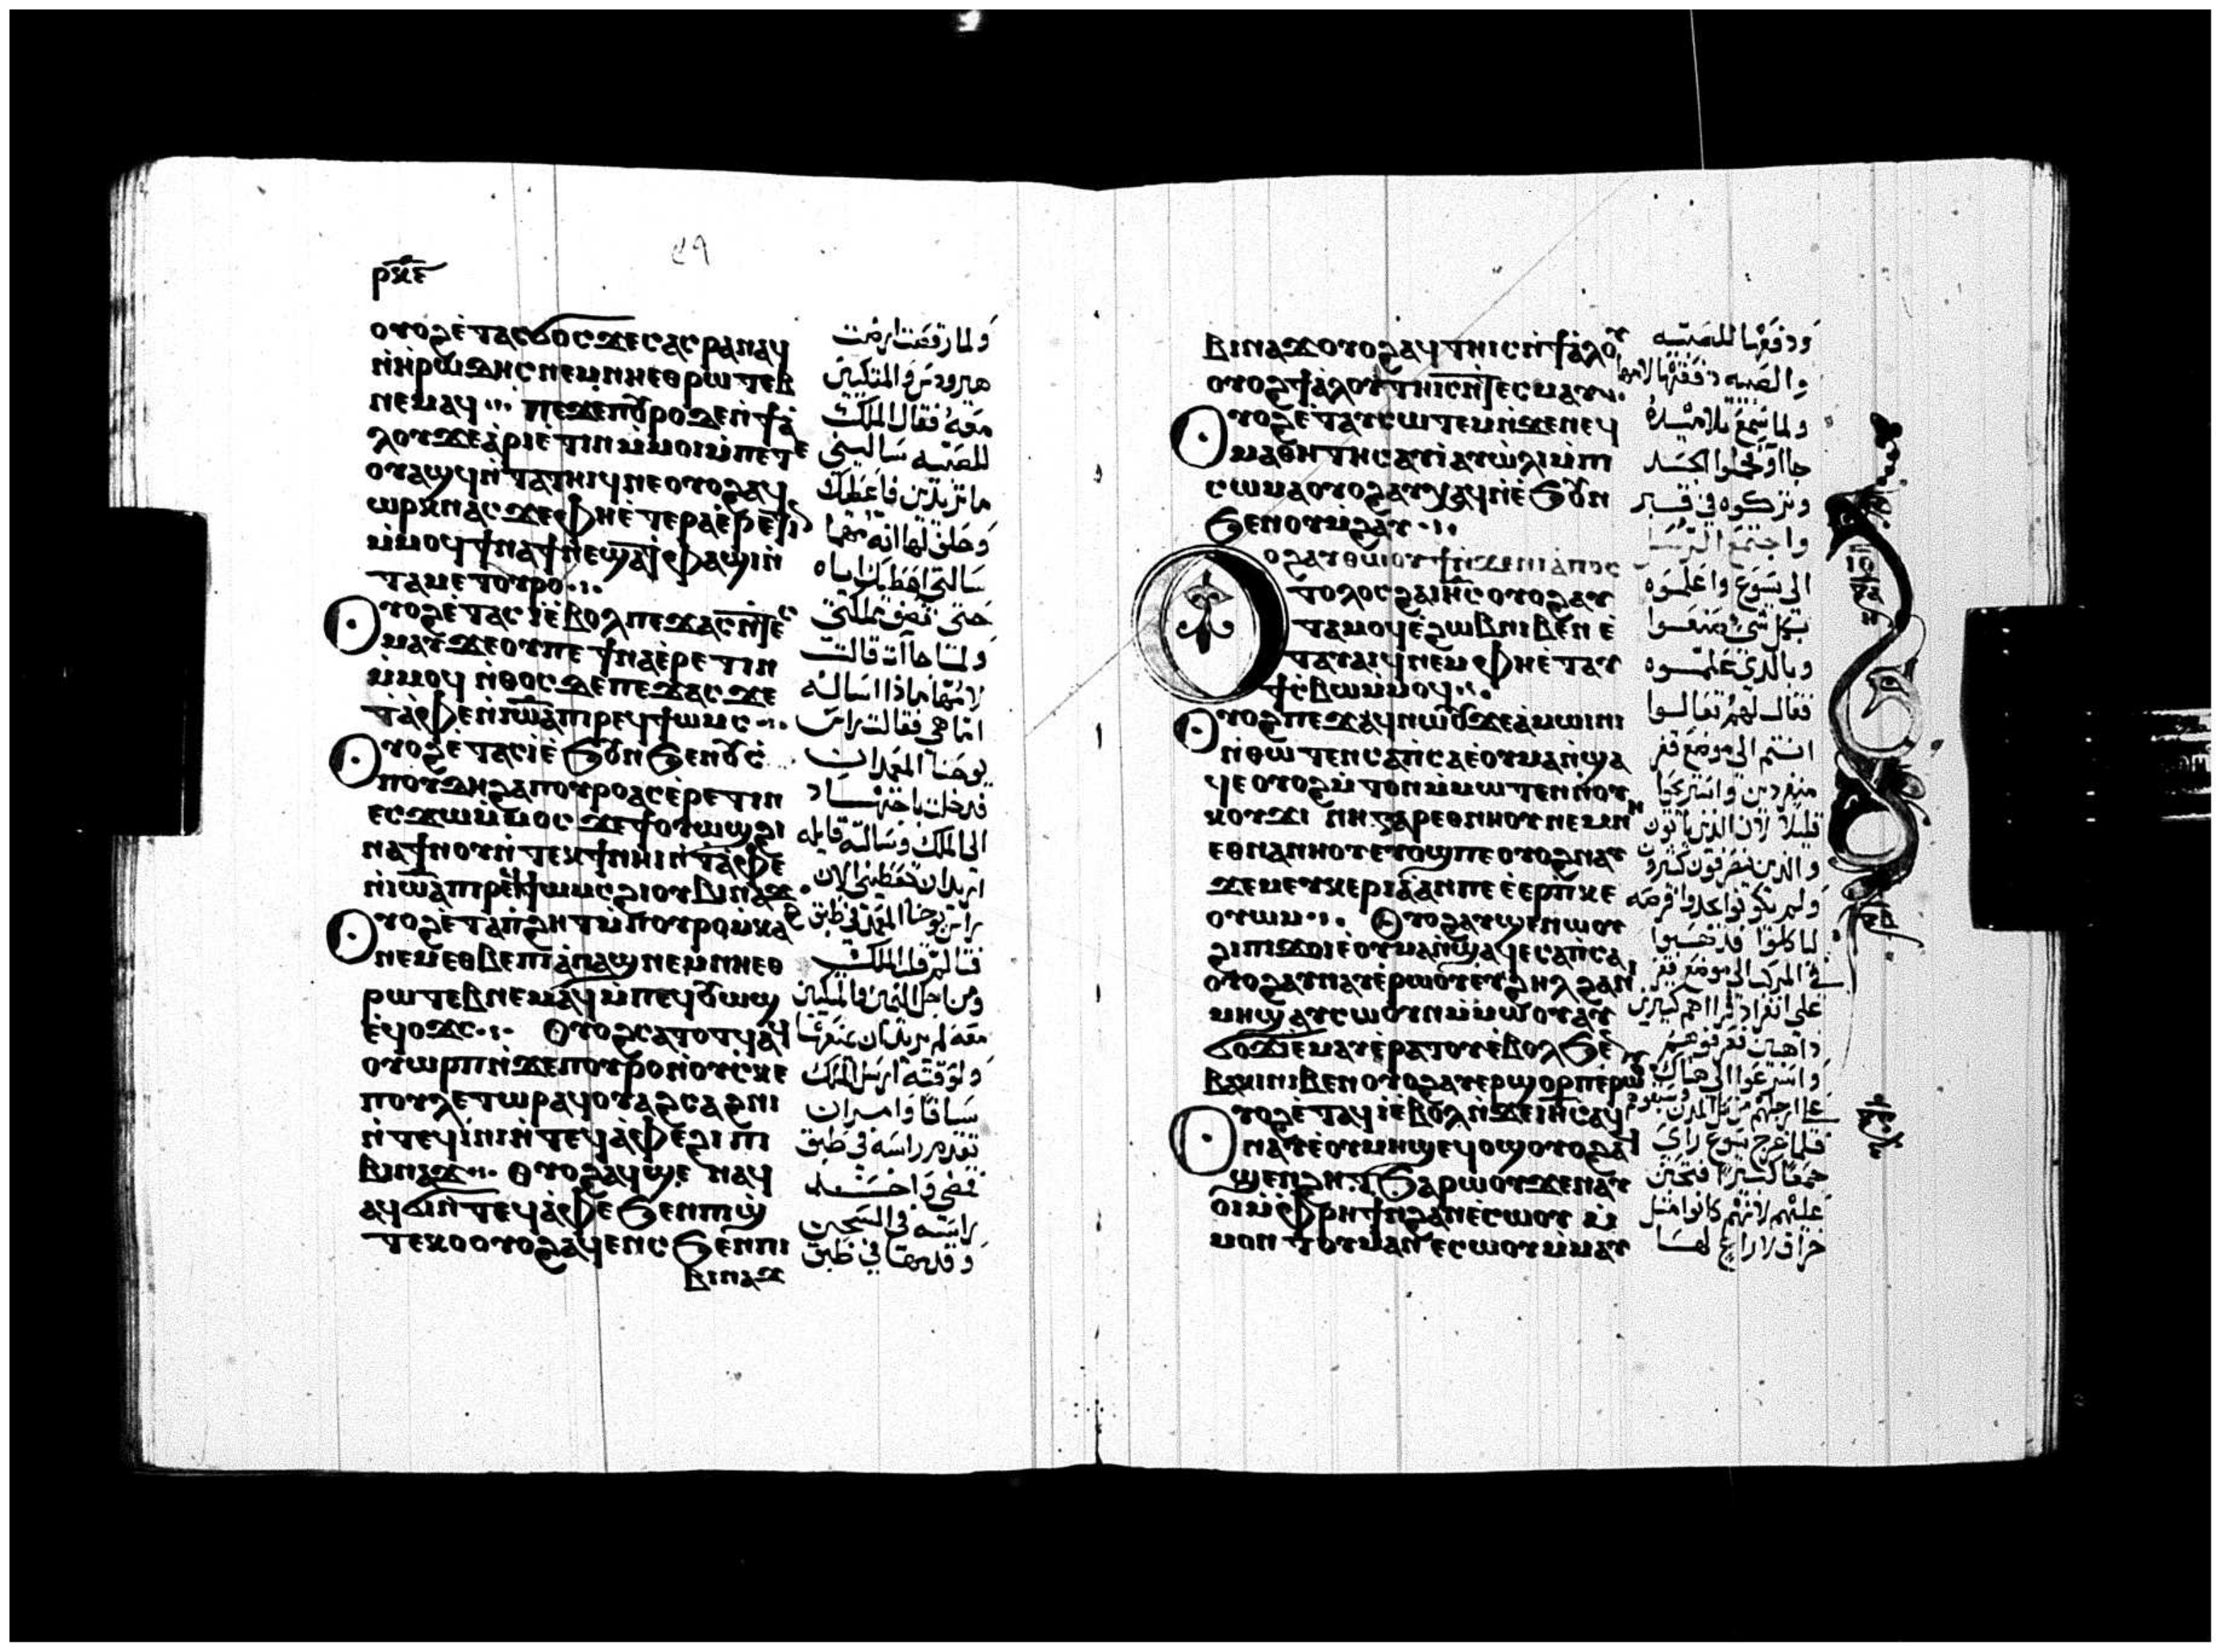 ⲣⲝⲉ
ⲟⲩⲟϩ ⲉ̀ⲧⲁⲥϭⲟⲥϫⲉⲥ ⲁⲥⲣⲁⲛⲁϥ
ⲛ̀ⲏ̀ⲣⲱⲇⲏⲥ ⲛⲉⲙ ⲛⲏⲉⲑⲣⲱⲧⲉⲃ
ⲛⲉⲙⲁϥ ⲡⲉϫⲉ ⲡⲟⲩⲣⲟ ϫⲉⲛ ϯⲁ̀
ⲗⲟⲩ ϫⲉ ⲁ̀ⲣⲓⲉ̀ⲧⲓⲛ ⲙ̀ⲙⲟⲓ ⲙ̀ⲡⲉⲧⲉ
ⲟⲩⲁϣϥ ⲛ̀ⲧⲁⲧⲏⲓϥ ⲛⲉ ⲟⲩⲟϩ ⲁϥ
ⲱⲣⲕ ⲛⲁⲥ ϫⲉ ⲫⲏⲉ̀ⲧⲉⲣⲁⲉ̀ⲣⲉ̀ⲧⲓⲛ
ⲙ̀ⲙⲟϥ ϯⲛⲁϯ ⲛⲉ ϣⲁ ⲧ̀ⲫⲁϣⲓ ⲛ̀
ⲧⲁⲙⲉⲧⲟⲩⲣⲟ
ⲟⲩⲟϩ ⲉ̀ⲧⲁⲥⲓ̀ ⲉ̀ⲃⲟⲗ ⲡⲉϫⲁⲥ ⲛ̀ⲧⲉⲥ
ⲙⲁⲩ ϫⲉ ⲟⲩ ⲡⲉ ϯⲛⲁⲉ̀ⲣⲉⲧⲓⲛ
ⲙ̀ⲙⲟϥ ⲛ̀ⲑⲟⲥ ⲇⲉ ⲡⲉϫⲁⲥ ϫⲉ
ⲧⲁ̀ⲫⲉ ⲛ̀ⲓⲱⲁ ⲡⲓⲣⲉϥϯⲱⲙⲥ
ⲟⲩⲟϩ ⲉ̀ⲧⲁⲥⲓ̀ ⲉ̀ϧⲟⲩⲛ ϧⲉⲛ ⲟⲩⲥ̀
ⲡⲟⲩⲇⲏ ϩⲁ ⲡⲟⲩⲣⲟ ⲁⲥⲉ̀ⲣⲉⲧⲓⲛ
ⲉⲥϫⲱ ⲙ̀ⲙⲟⲥ ϫⲉ ϯⲟⲩⲱϣ ϩⲓ
ⲛⲁ ϯⲛⲟⲩ ⲛ̀ⲧⲉⲕϯ ⲛⲏⲓ ⲛ̀ⲧⲁ̀ⲫⲉ
ⲛ̀ⲓⲱⲁ ⲡⲓⲣⲉϥϯⲱⲙⲥ ϩⲓ ⲟⲩⲃⲓⲛⲁϫ
ⲟⲩⲟϩ ⲉ̀ⲧⲁ ⲡ̀ϩⲏⲧ ⲙ̀ⲡⲟⲩⲣⲟ ⲙ̀ⲕⲁ
ⲛⲉⲙ ⲉⲑⲃⲉ ⲡⲓⲁ̀ⲛⲁϣ ⲛⲉⲙ ⲛⲏⲉⲑ
ⲣⲱⲧⲉⲃ ⲛⲉⲙⲁϥ ⲙ̀ⲡⲉϥⲟⲩⲱϣ
ⲉ̀ϥⲟϫⲥ ⲟⲩⲟϩ ⲥⲁⲧⲟⲧϥ ⲁϥ
ⲟⲩⲱⲣⲡ ⲛ̀ϫⲉ ⲡⲟⲩⲣⲟ ⲛ̀ⲟⲩⲥⲡⲉ
ⲕⲟⲩⲗⲉⲧⲱⲣ ⲁϥⲟⲩⲁϩⲥⲁϩⲛⲓ
ⲛ̀ⲧⲉϥⲓ̀ⲛⲓ ⲛ̀ⲧⲉϥⲁ̀ⲫⲉ ϩⲓ ⲡⲓ
ⲃⲓⲛⲁϫ ⲟⲩⲟϩ ⲁϥϣⲉ ⲛⲁϥ
ⲁϥϭⲓ ⲛ̀ⲧⲉϥⲁ̀ⲫⲉ ϧⲉⲛ ⲡⲓϣ
ⲧⲉⲕⲟ ⲟⲩⲟϩ ⲁϥⲉⲛⲥ ϧⲉⲛ ⲡⲓ
ⲃⲓⲛⲁϫ
ولما رقصت ارضت
هيرودس والمتكيين
معه فقال الملك
للصبيه ساليني
ما تريدين فاعطيك
وحلف لها انه مهما
سالتي اعطيك اياه
حتى نصف مملكتي
ولما جاات قالت
لامها ماذا اساله
اما هي فقالت راس
يوحنا المعمدان
فدخلت باجتهاد
الى الملك وسالته قايله
اريد ان تعطيني الان
راس يوحنا المعمد في طبق
فتالم قلب الملك
ومن اجل اليمين والمتكيين
معه لم يريد ان يمنعها
ولوقته ارسل الملك
سيافا وامر ان
تقدم راسه في طبق
فمضى واخذ
راسه في السجن
وقدمها في طبق
ⲃⲓⲛⲁϫ ⲟⲩⲟϩ ⲁϥⲧⲏⲓⲥ ⲛ̀ϯⲁ̀ⲗⲟⲩ
ⲟⲩⲟϩ ϯⲁ̀ⲗⲟⲩ ⲧⲏⲓⲥ ⲛ̀ⲧⲉⲥⲙⲁⲩ
ⲟⲩⲟϩ ⲉ̀ⲧⲁⲩⲥⲱⲧⲉⲙ ⲛ̀ϫⲉ ⲛⲉϥ
ⲙⲁⲑⲏⲧⲏⲥ ⲁⲩⲓ̀ ⲁⲩⲱ̀ⲗⲓ ⲙ̀ⲡⲓ
ⲥⲱⲙⲁ ⲟⲩⲟϩ ⲁⲩⲭⲁϥ ⲛ̀ⲉ̀ϧⲟⲩⲛ
ϧⲉⲛ ⲟⲩⲙ̀ϩⲁⲩ
ⲟⲩⲟϩ ⲁⲩⲑⲱⲟⲩϯ ⲛ̀ϫⲉ ⲛⲓⲁ̀ⲡⲟⲥ
ⲧⲟⲗⲟⲥ ϩⲁ ⲓⲏⲥ ⲟⲩⲟϩ ⲁⲩ
ⲧⲁⲙⲟϥ ⲉ̀ϩⲱⲃ ⲛⲓⲃⲉⲛ ⲉ̀
ⲧⲁⲩⲁⲓⲧⲟⲩ ⲛⲉⲙ ⲫⲏⲉ̀ⲧⲁⲩ
ϯⲥ̀ⲃⲱ ⲙ̀ⲙⲟϥ
ⲟⲩⲟϩ ⲡⲉϫⲁϥ ⲛⲱⲟⲩ ϫⲉ ⲁ̀ⲙⲱⲓⲛⲓ
ⲛ̀ⲑⲱⲧⲉⲛ ⲥⲁⲡ̀ⲥⲁ ⲉ̀ⲟⲩⲙⲁ ⲛ̀ϣⲁ
ϥⲉ ⲟⲩⲟϩ ⲙ̀ⲧⲟⲛ ⲙ̀ⲙⲱⲧⲉⲛ ⲛ̀ⲟⲩ
ⲕⲟⲩϫⲓ ⲛⲏ ⲅⲁⲣ ⲉⲑⲛⲏⲟⲩ ⲛⲉⲙ ⲛⲏ
ⲉⲑⲛⲁ ⲛⲏⲟⲩⲉⲧⲟϣ ⲡⲉ ⲟⲩⲟϩ ⲛⲁⲩ
ϫⲉⲙ ⲉⲩⲕⲉⲣⲓⲁ̀ ⲁⲛ ⲡⲉ ⲉ̀ⲉⲣⲡ̀ⲕⲉ
ⲟⲩⲱⲙ ⲟⲩⲟϩ ⲁⲩϣⲉⲛⲱⲟⲩ
ϩⲓ ⲡⲓϫⲟⲓ ⲉ̀ⲟⲩⲙⲁ ⲛ̀ϣⲁϥⲉ ⲥⲁⲡ̀ⲥⲁ
ⲟⲩⲟϩ ⲁⲩⲛⲁⲩ ⲉ̀ⲣⲱⲟⲩ ⲉⲩϩⲏⲗ ϩⲁⲛ
ⲙⲏϣ ⲁⲩⲥⲱⲟⲩⲛ ⲙ̀ⲙⲱⲟⲩ ⲁⲩ
ϭⲟϫⲓ ⲉ̀ⲙⲁⲩ ⲉ̀ⲣⲁⲧⲟⲩ ⲉ̀ⲃⲟⲗ ϧⲉⲛ
ⲃⲁⲕⲓ ⲛⲓⲃⲉⲛ ⲟⲩⲟϩ ⲁⲩⲉⲣϣⲟⲣⲡ ⲉ̀ⲣⲱⲟⲩ
ⲟⲩⲟϩ ⲉ̀ⲧⲁϥⲓ̀ ⲉ̀ⲃⲟⲗ ⲛ̀ϫⲉ ⲓⲏⲥ ⲁϥ
ⲛⲁⲩ ⲉ̀ⲟⲩⲙⲏϣ ⲉϥⲟϣ ⲟⲩⲟϩ ⲁϥ
ϣⲉⲛϩⲏⲧ ϧⲁⲣⲱⲟⲩ ϫⲉ ⲛⲁⲩ
ⲟⲓ ⲙ̀ⲫⲣⲏϯ ⲛ̀ϩⲁⲛⲉ̀ⲥⲱⲟⲩ ⲙ̀
ⲙⲟⲛ ⲧⲟⲩ ⲙⲁⲛⲉⲥⲱⲟⲩ ⲙ̀ⲙⲁⲩ
ودفعها للصبيه
والصبيه دفعتها لامها
ولما سمع تلاميذه
جااوا فحملوا الجسد
وتركوه في قبر
واجتمع الرسل
الى يسوع واعلموه
بكل شي صنعوا
وبالذي علموه
فقال لهم تعالوا
انتم الى موضع قفر
منفردين واستريحوا
قليلا لان الذين ياتون
والذين ينصرفون كثيرون
ولم يكونوا يجدوا فرصه
لياكلوا فذهبوا
في المركب الى موضع قفر
على انفراد فراهم كثيرين
ذاهبين فعرفوهم
واسرعوا الى هناك
على ارجلهم من كل المدن وسبقوهم
فلما خرج يسوع راى
جمعا كثيرا فتحنن
عليهم لانهم كانوا مثل
خراف لا راعي لها